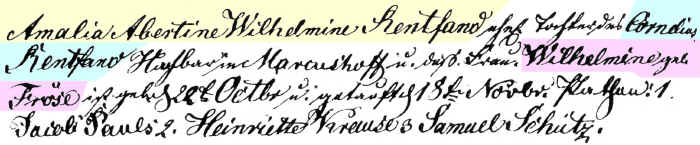 Amalia Abertine Wilhelmine Rentfand ehel. Tochter des Cornelius
Rentfand in Marcushoff u. dess. Frau. Wilhelmine geb.
Fröse ist geb. d 22t Octbr u. getauft d 18t Novbr. Pathen: 1.
Jacob Pauls 2. Heinriette Krause 3 Samuel Schütz.